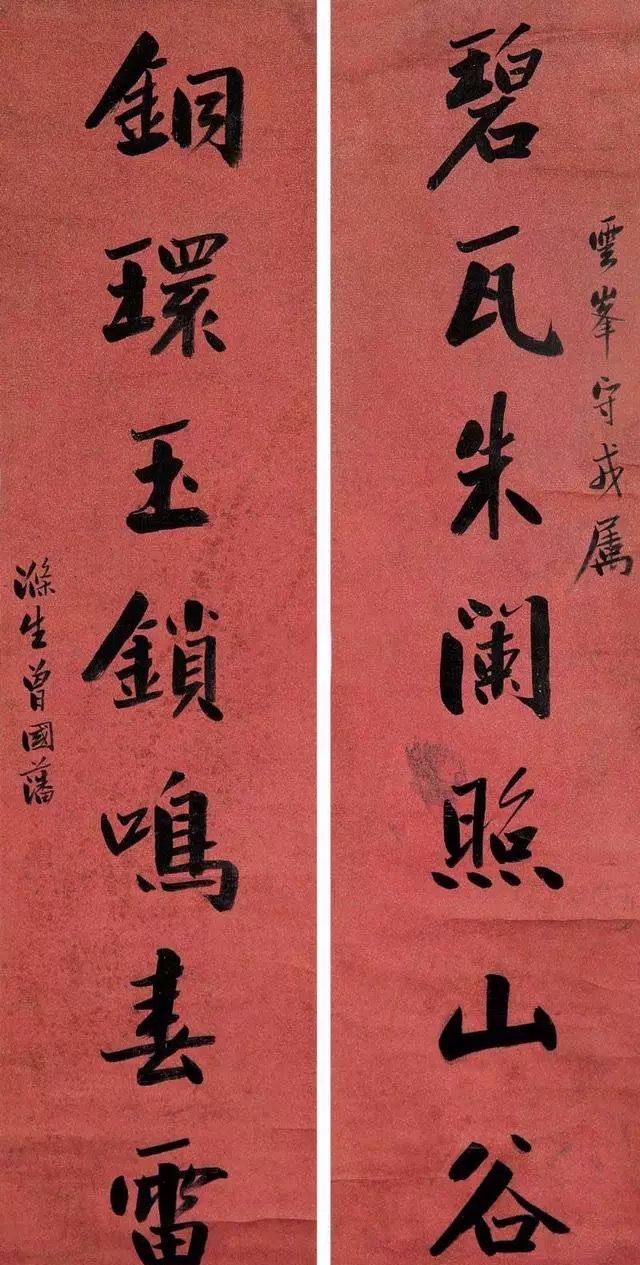 雲峯守戎屬
碧瓦朱闌照山谷
銅環玉鎖鳴春雷
滌生曾國藩